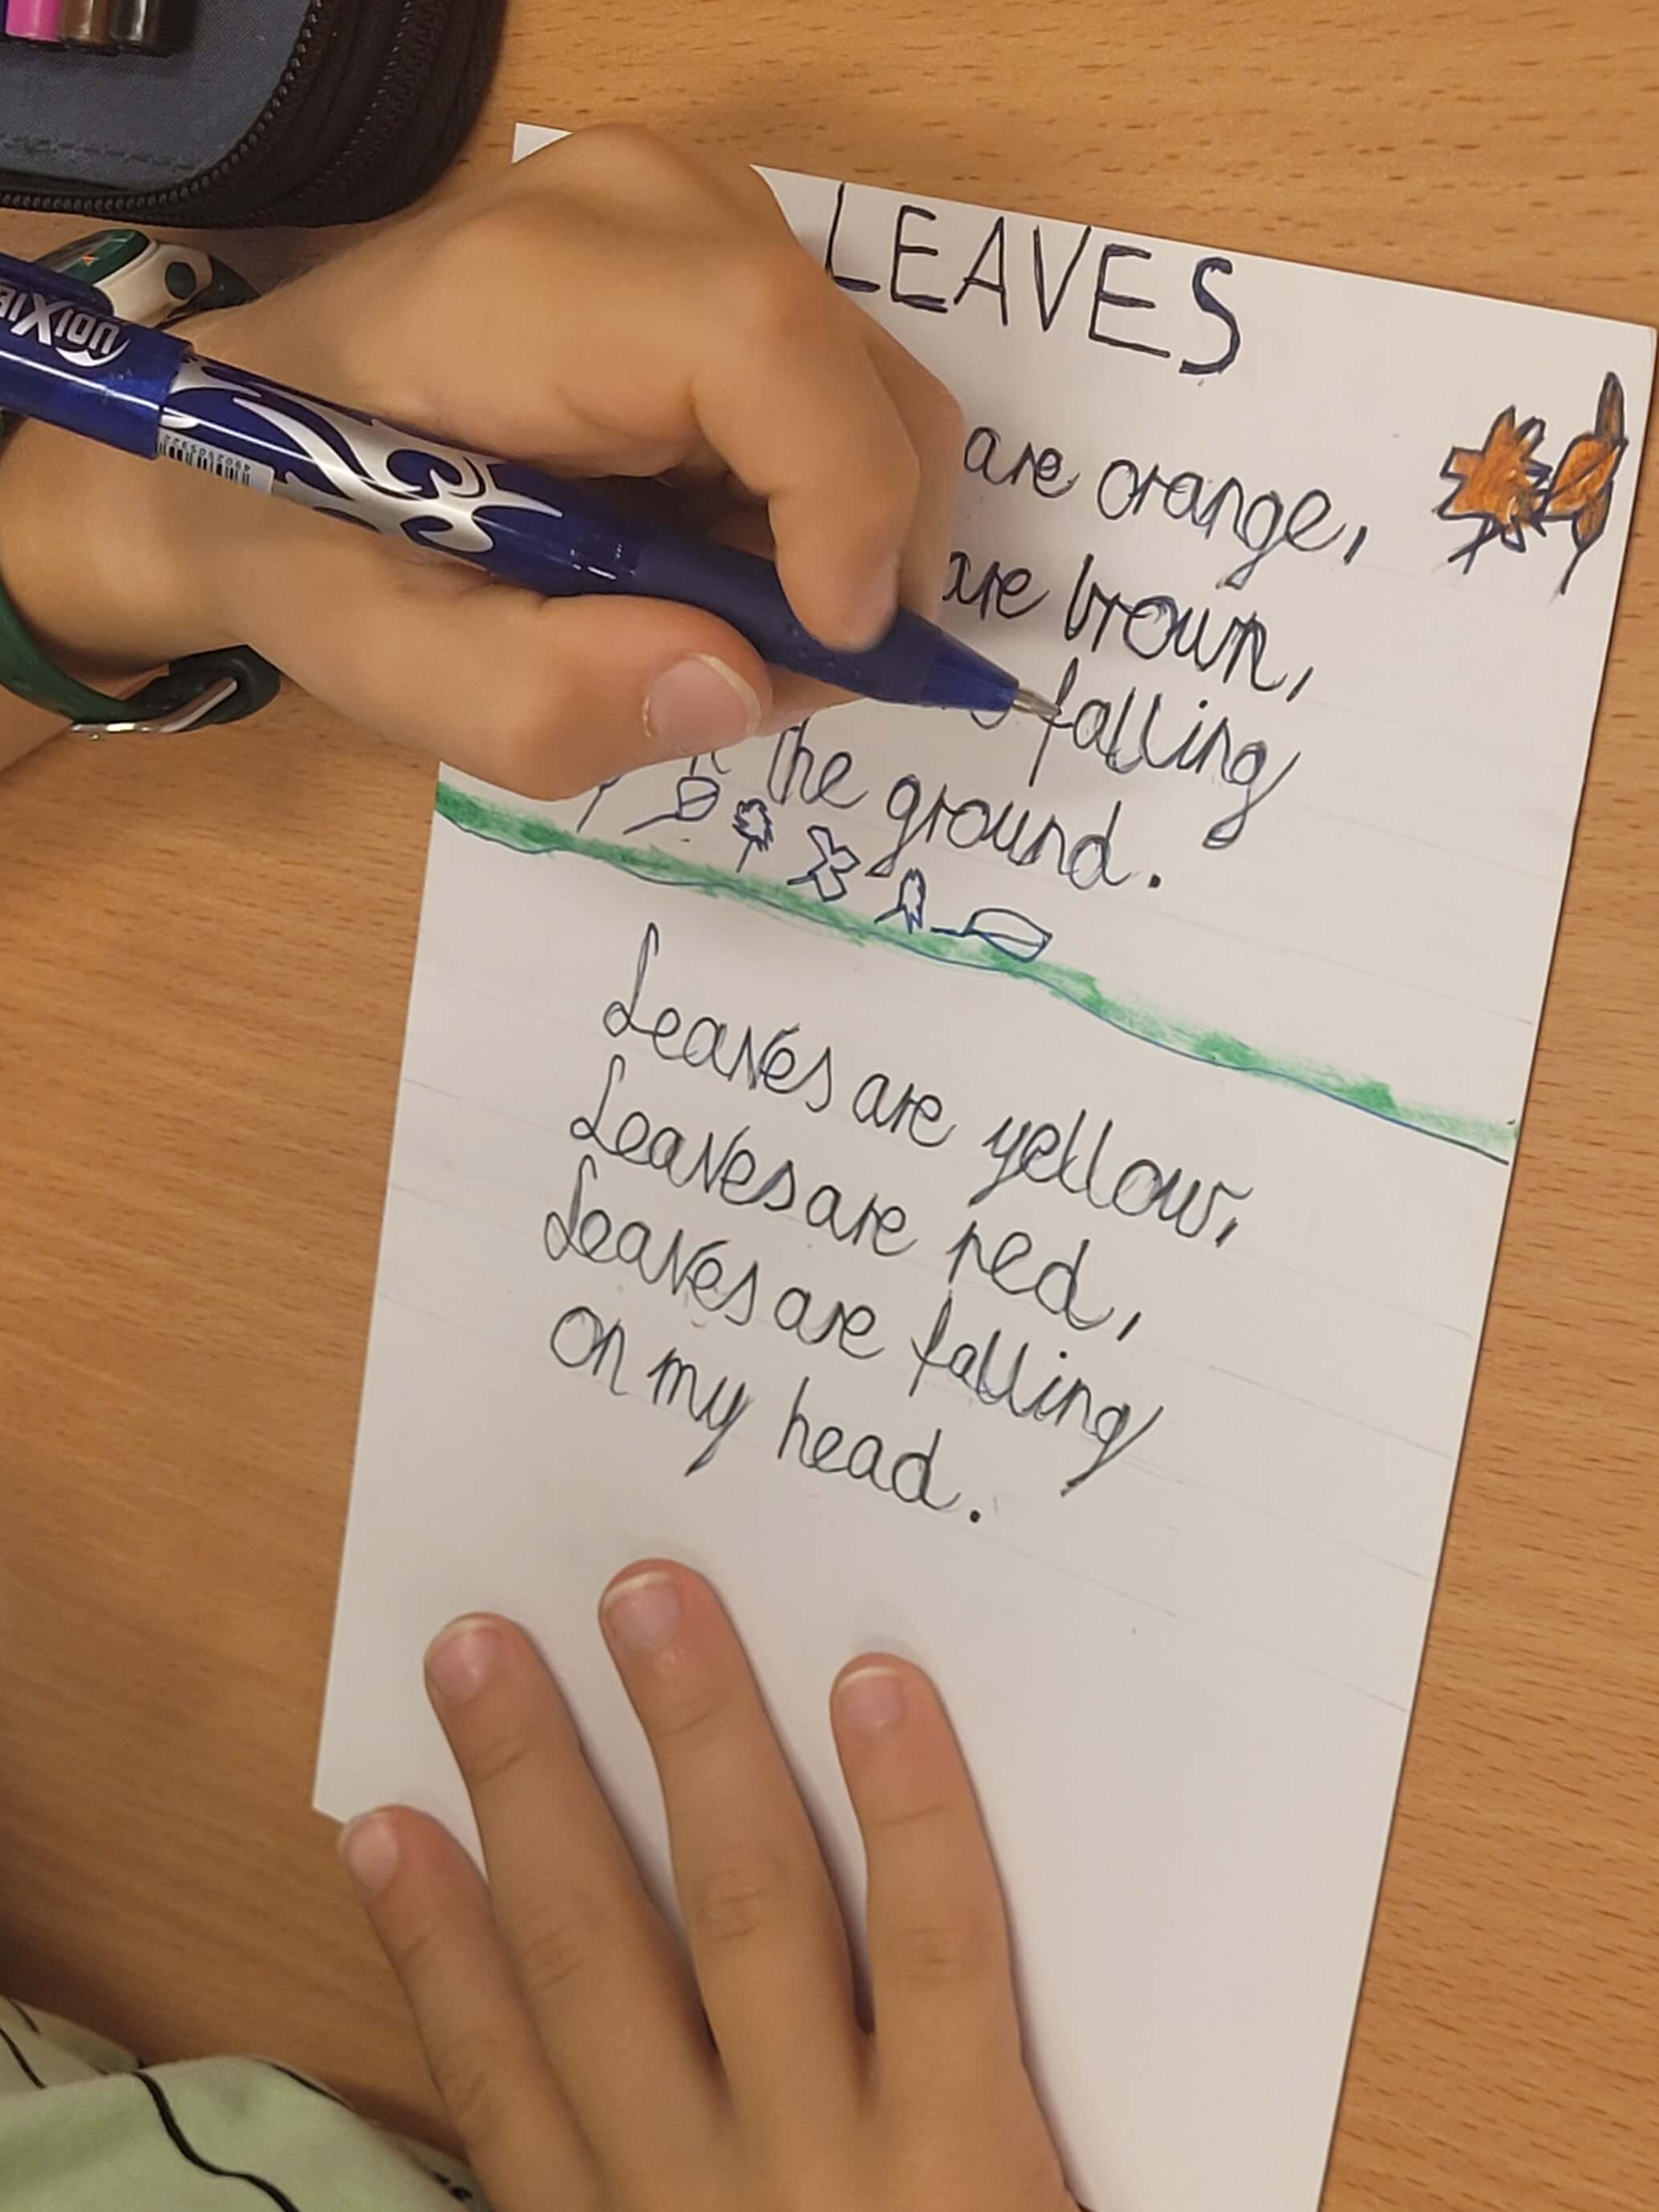 LEAVES
are orange,
are brown,
falling
the ground.
Leaves are yellow,
Leaves are red,
Leaves are falling
on my head.
FriXion